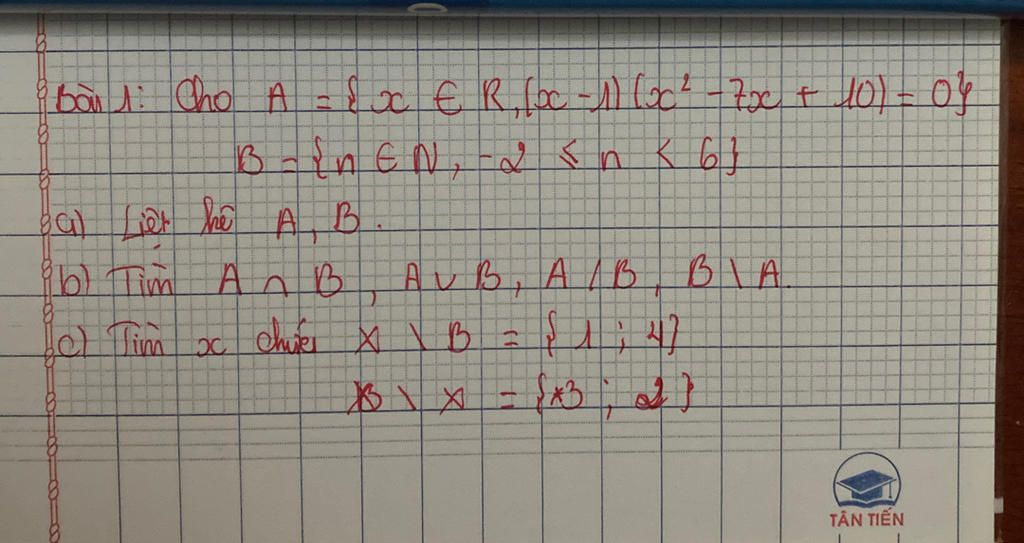 Bài 1: Cho A = {x ∈ R, (x - 1)(x² - 7x + 10) = 0}
B = {n ∈ N, -2 ≤ n < 6}
a) Liệt kê A, B.
b) Tìm A ∩ B, A ∪ B, A / B, B \ A.
c) Tìm x X \ B = {1 ; 4}
B \ X = {3 ; 2}
TÂN TIẾN